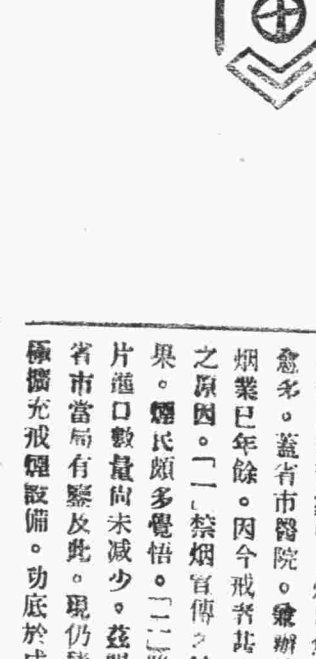 愈多。蓋省市醫院。兼辦
烟業已年餘。因今戒者甚
之原因。「一」禁烟宣傳之
果。煙民頗多覺悟。「二」
片進口數量尚未减少。茲
省市當局有鑒及此。現仍
極擴充戒煙設備。功底於